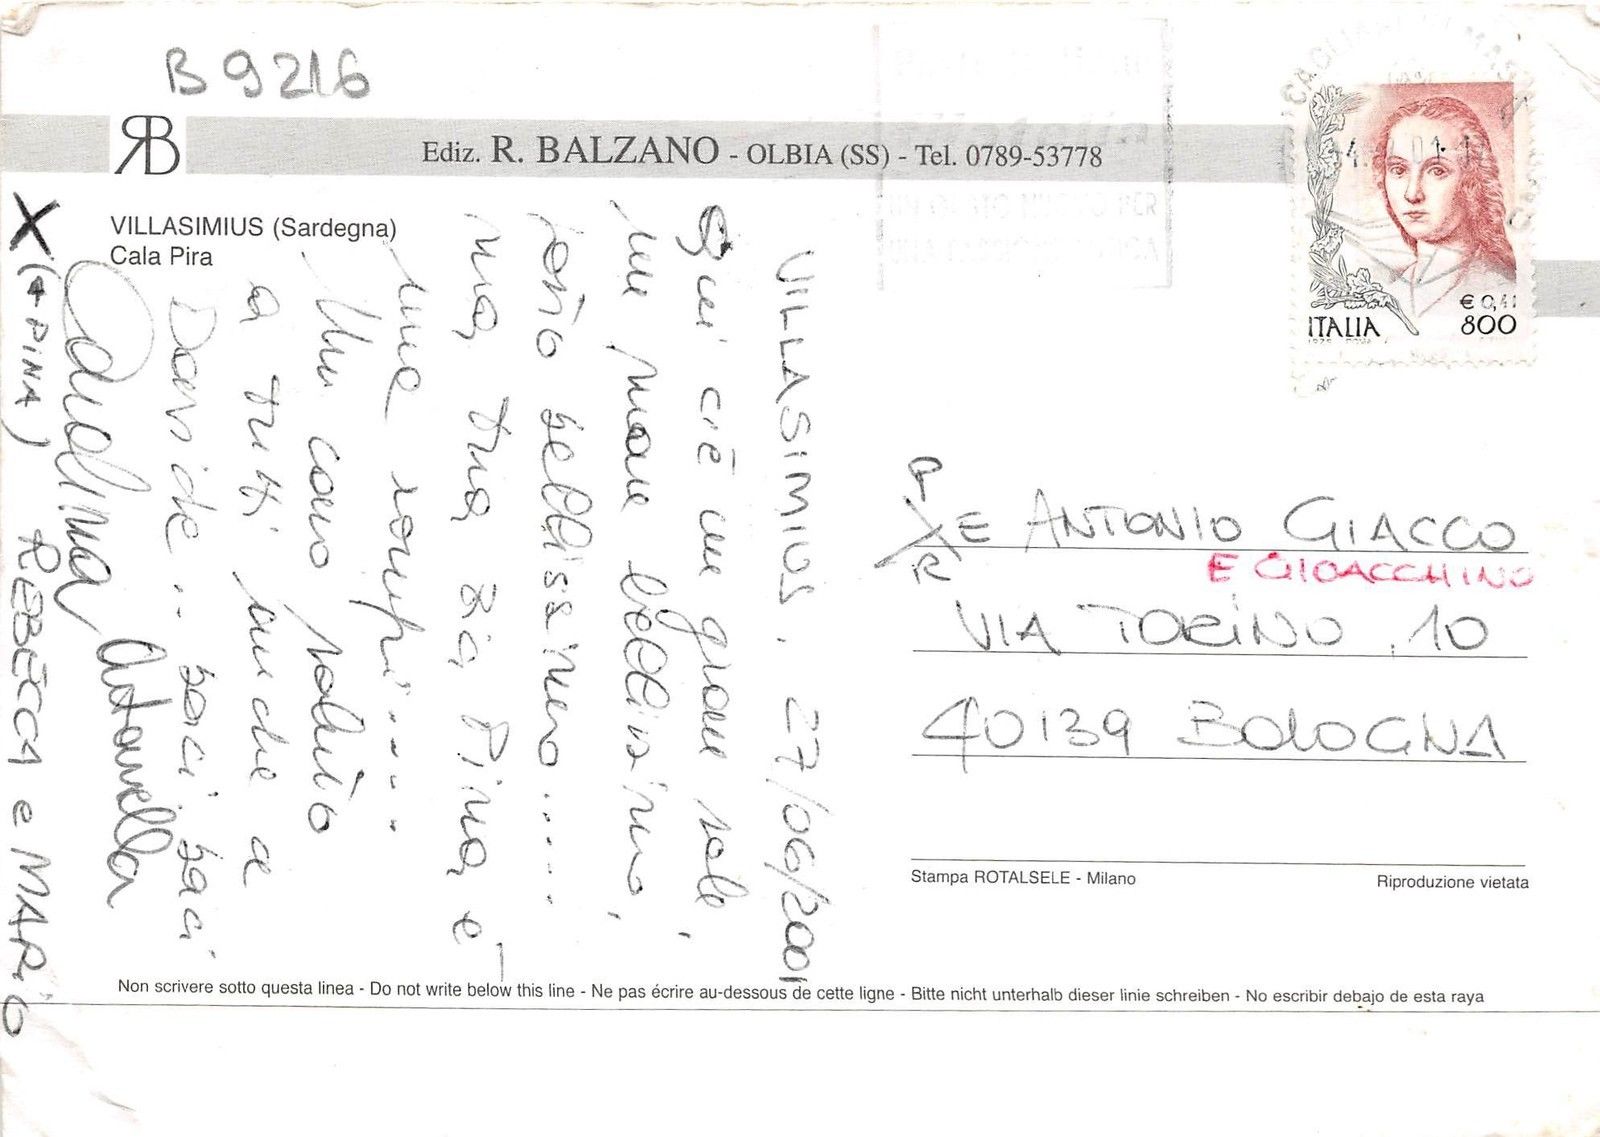 B 9216
RB
Ediz. R. BALZANO - OLBIA (SS) - Tel. 0789-53778
VILLASIMIUS (Sardegna)
Cala Pira
ITALIA
€ 0,41
800
VILLASIMIUS, 27/06/2001
Qui c'è un gran sole,
un mare bellissimo,
tutto bellissimo.....
ma tua zia Pina è
una rompi.....
Un caro saluto
a tutti anche a
Davide... baci baci
Antonella
X (+ PINA) REBECCA e MARIO
P/R E ANTONIO GIACCO
E GIOACCHINO
VIA TORINO, 10
40139 BOLOGNA
Stampa ROTALSELE - Milano
Riproduzione vietata
Non scrivere sotto questa linea - Do not write below this line - Ne pas écrire au-dessous de cette ligne - Bitte nicht unterhalb dieser linie schreiben - No escribir debajo de esta raya